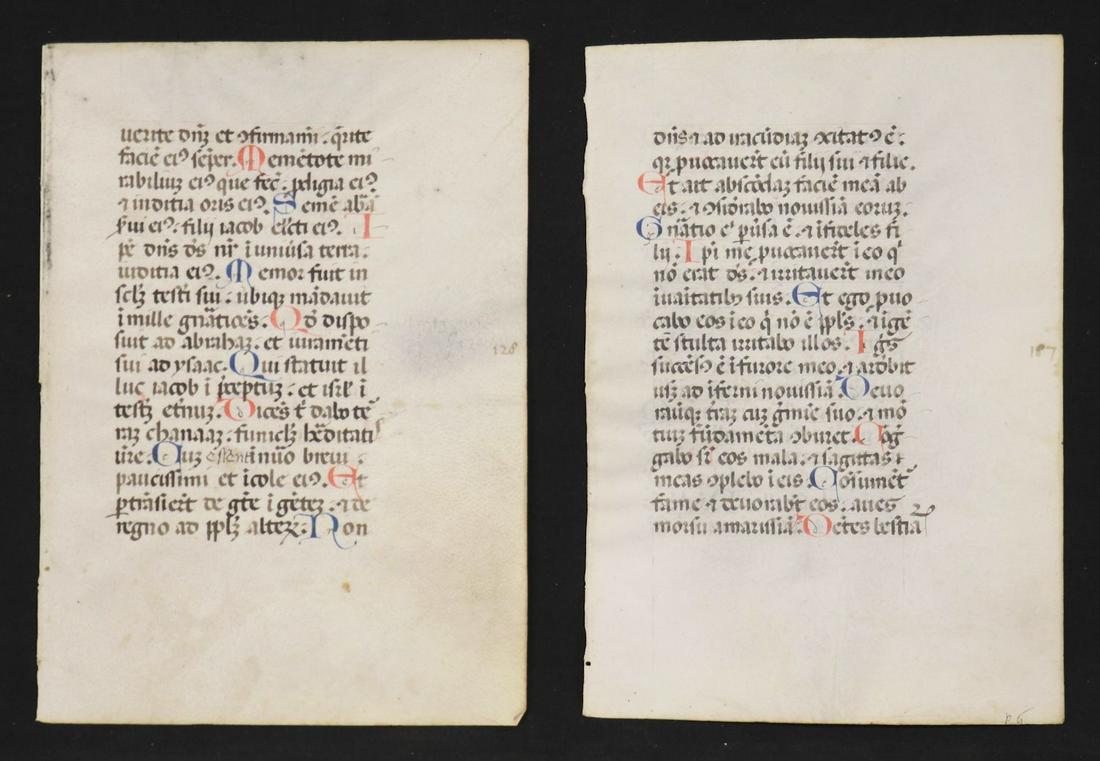 uerite dnʒ et ꝯfirmamī . q̄rite
faciē eiꝰ semp̲er. Memētote mi
rabiliuʒ eiꝰ que fec̄ . p̲digia eiꝰ
⁊ iuditia oris eiꝰ. Semē abᵃā
s̲ui eiꝰ . filij iacob elc̄ti eiꝰ. I
pē dn̄s dꝰs nr̄ ī uniūsa terra .
iuditia eiꝰ. Memor fuit in
sclʒ testī sui . ubiqʒ mādauit
ī mille gn̄aticēs. Qđ dispo
suit ad abrahaʒ . et iuramēti
sui ad ysaac. Qui statuit il
luc iacob ī p̄ceptuʒ . et isrł ī
testʒ et̄nuʒ. Dicēs t̄ dabo tē
raʒ chanaaʒ . funiclʒ hēditati
ūre. Cuʒ essent ī nūo breui .
paucissimi et īcole eiꝰ. Et
p̲trāsierūt de gēte ī gētez . ⁊ de
regno ad pp̄lʒ alterꝝ. Non
128
dn̄s ⁊ ad iracūdiaʒ ꝯcitatꝰ ē .
qꝛ puocauert̄ eū filij sui ⁊ filie.
Et ait abscōdaʒ faciē meā ab
eis . ⁊ ꝯsid̄rabo nouissīa eoruʒ.
Gnātio .n. p̲uꝰsa ē . ⁊ īficeles fi
lij. Ipī me puocauert̄ ī eo qͥ
nō erat dꝰs . ⁊ irritauert̄ me o
ī uaītatibꝰ suis. Et ego puo
cabo eos ī eo qͥ nō ē pp̄ls . ⁊ ī gē
tē stulta irritabo illos. Igs̄
succēsꝰ ē ī furore meo . ⁊ ardēbit
usqʒ ad īferni nouissīa. Deuo
rauitqʒ trāʒ cuʒ ḡmīe suo . ⁊ mō
tiuʒ fūdamēta ꝯburet. Cōḡ
gabo sr̄ eos mala . ⁊ sagittas
meas ꝯplebo ī eis. Cōsumēt̄
fame ⁊ deuorabt̄ eos . aues
morsu amarissīa. Dētes bestiaꝝ
187